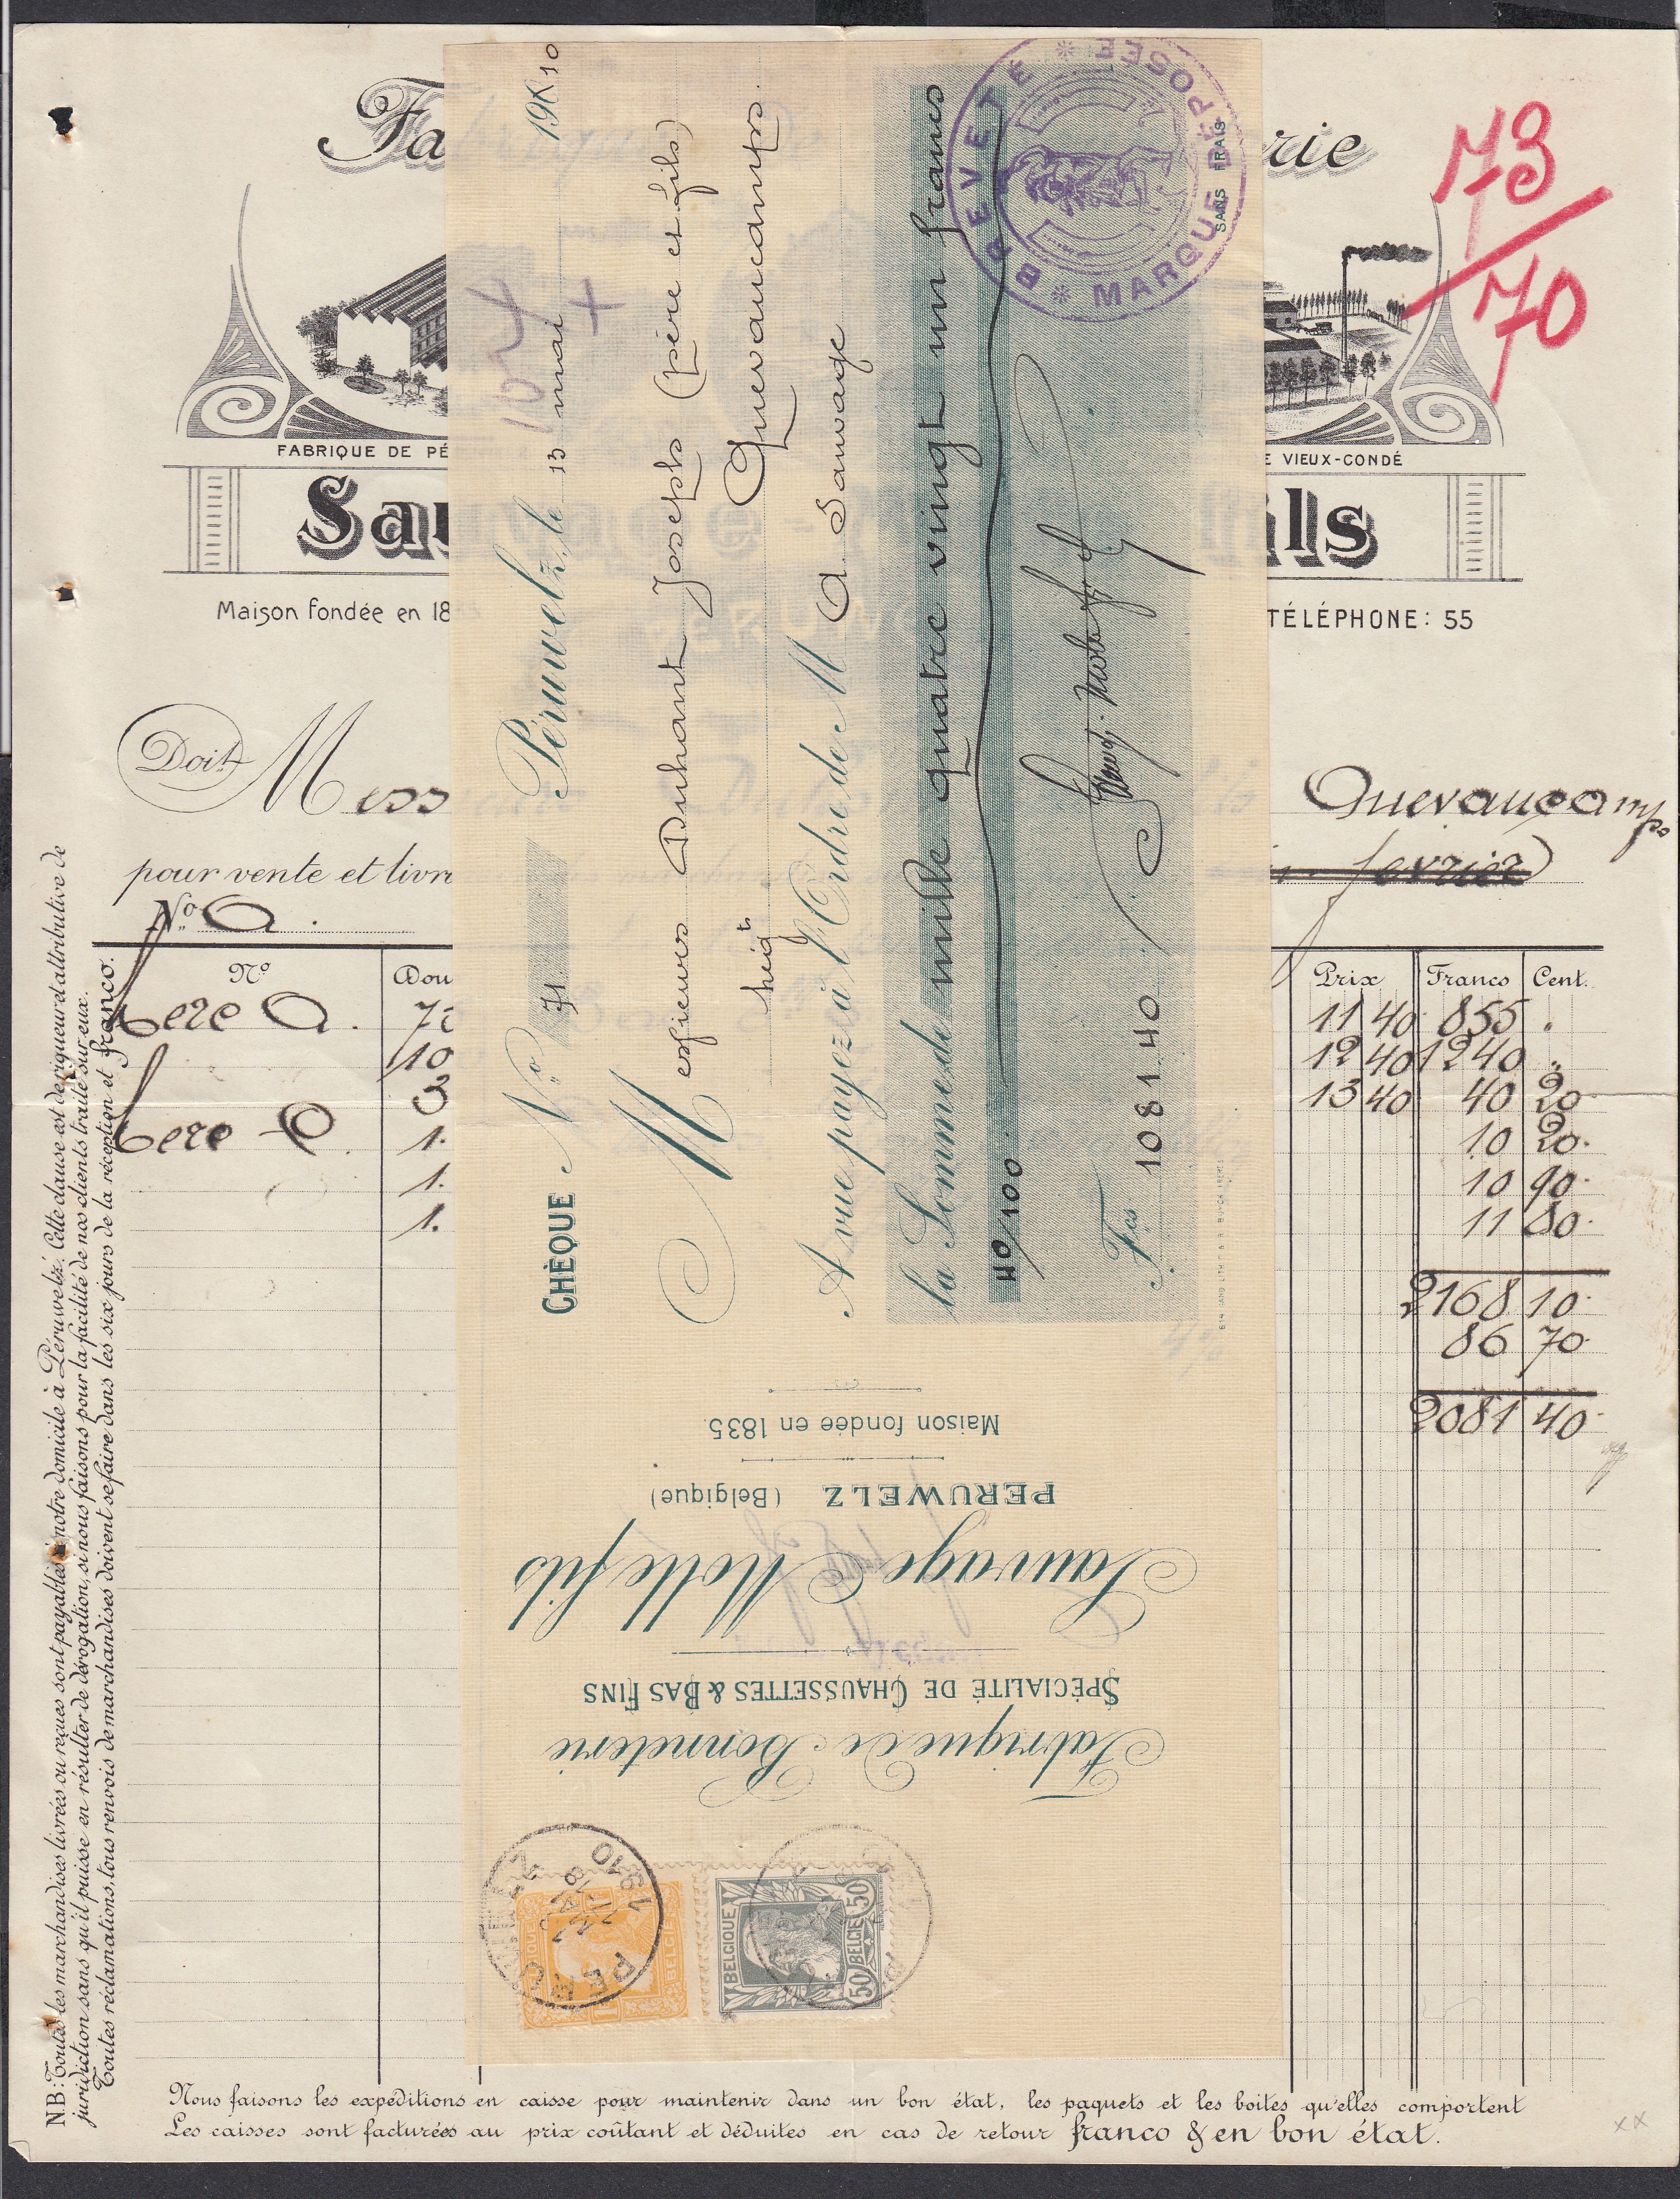 Fa
rie
73
70
FABRIQUE DE PÉ
E VIEUX-CONDÉ
Sau
ils
Maison fondée en 18
TÉLÉPHONE: 55
Doit M ess
Quevaucamps
pour vente et livr
fevrier
N° A.
N° Dou Prix Francs Cent.
Sere A. 11 40 855 .
10 12 40 1240 "
3 13 40 40 20
Sere 1. 10 20
1. 10 90
1. 11 80
2168 10
86 70
2081 40
N.B: Toutes les marchandises livrées ou reçues sont payables à notre domicile à Péruwelz. Cette clause est de rigueur et attributive de
juridiction sans qu'il puisse en résulter de dérogation, si nous faisons pour la facilité de nos clients traite sur eux.
Toutes réclamations, tous renvois de marchandises doivent se faire dans les six jours de la réception et franco.
CHÈQUE N° 71 Péruwelz, le 13 mai 1910
Messieurs Duhant Joseph (père et fils)
négts Quevaucamps.
A vue payez à l'Ordre de M A Sauvage
la Somme de mille quatre vingt un francs
40/100.
Fcs 1081.40
SANS FRAIS
BREVETÉ * MARQUE DÉPOSÉE *
Fabrique de Bonneterie
SPÉCIALITÉ DE CHAUSSETTES & BAS FINS
Sauvage Molle fils
PERUWELZ (Belgique)
Maison fondée en 1835.
PERUWELZ
1910
BELGIQUE
BELGIË
BELGIQUE
50 BELGIË 50
Nous faisons les expéditions en caisse pour maintenir dans un bon état, les paquets et les boites qu'elles comportent
Les caisses sont facturées au prix coûtant et déduites en cas de retour franco & en bon état.